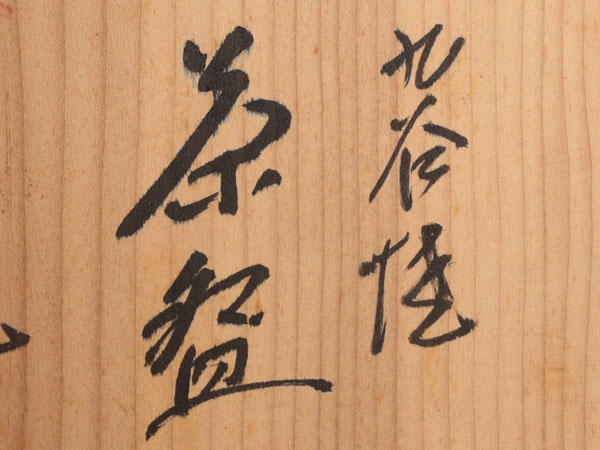 九谷焼
茶盌